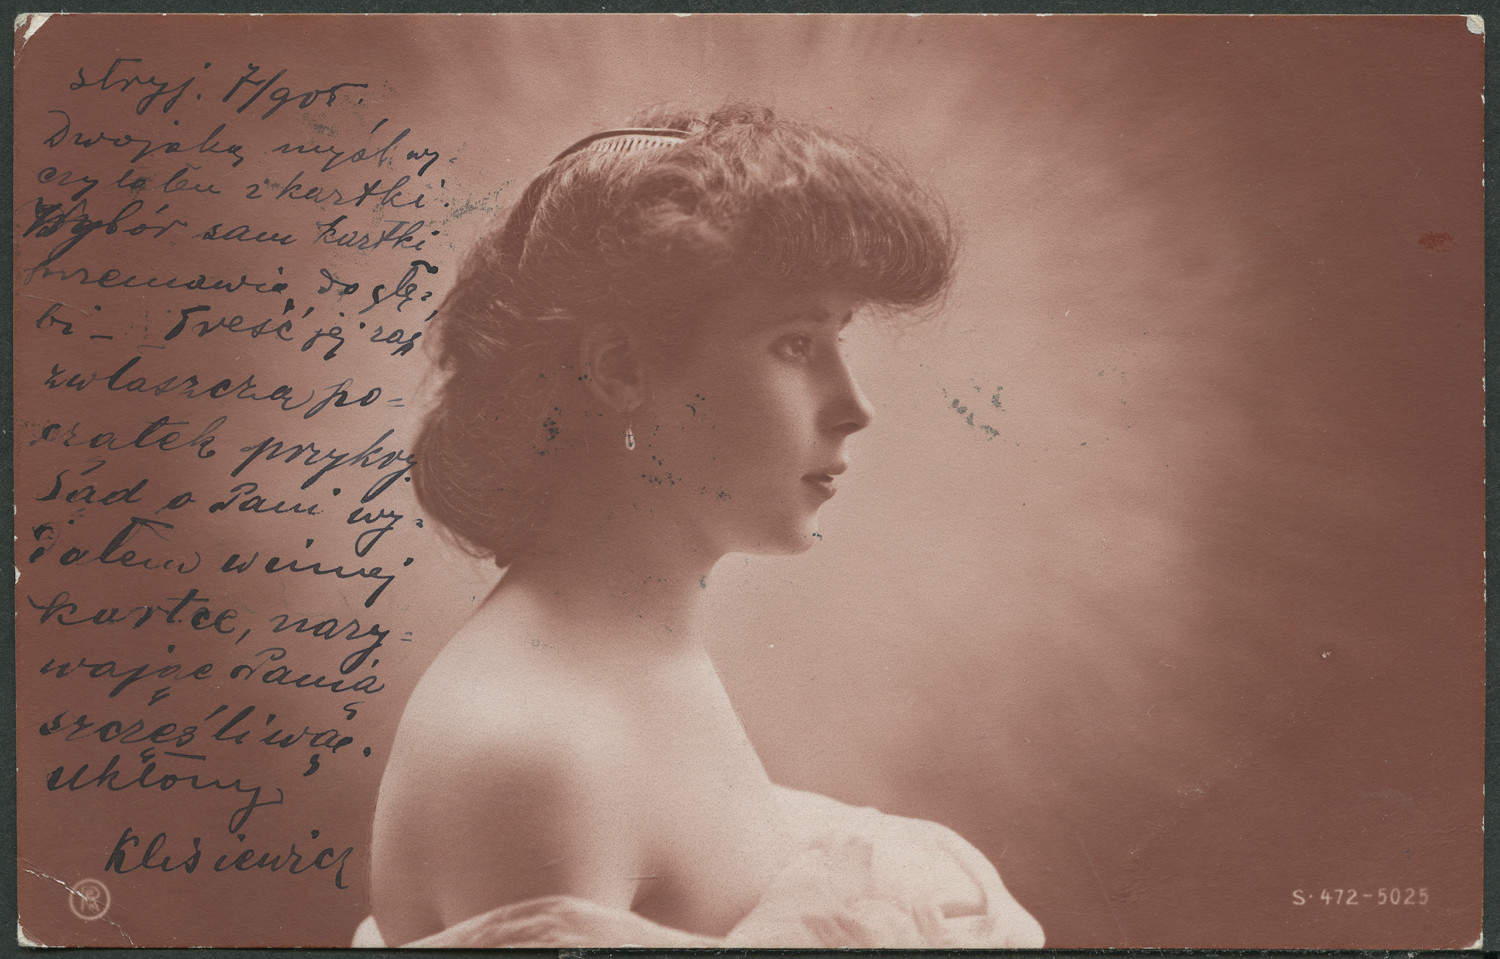 Stryj. 7/905.
Dwojaką myśl wy-
czytałem z kartki.
Wybór sam kartki
przemawia do głę-
bi – Treść jej zaś
zwłaszcza po-
czątek przykry
Sąd o Pani wy-
dałem w innej
kartce, nazy-
wając Panią
szczęśliwą.
Ukłony
Klisiewicz
S·472-5025